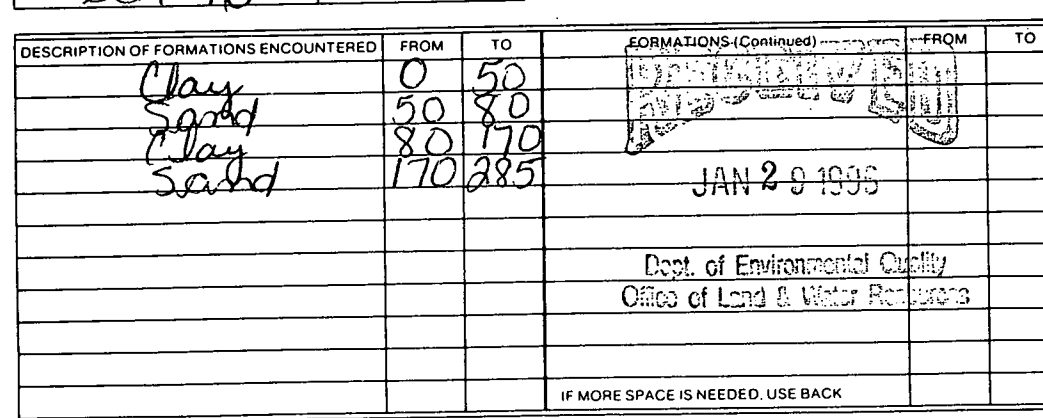 DESCRIPTION OF FORMATIONS ENCOUNTERED FROM TO FORMATIONS (Continued) FROM TO
Clay 0 50
Sand 50 80
Clay 80 170
Sand 170 285
RECEIVED
JAN 29 1996
Dept. of Environmental Quality
Office of Land & Water Resources
IF MORE SPACE IS NEEDED, USE BACK